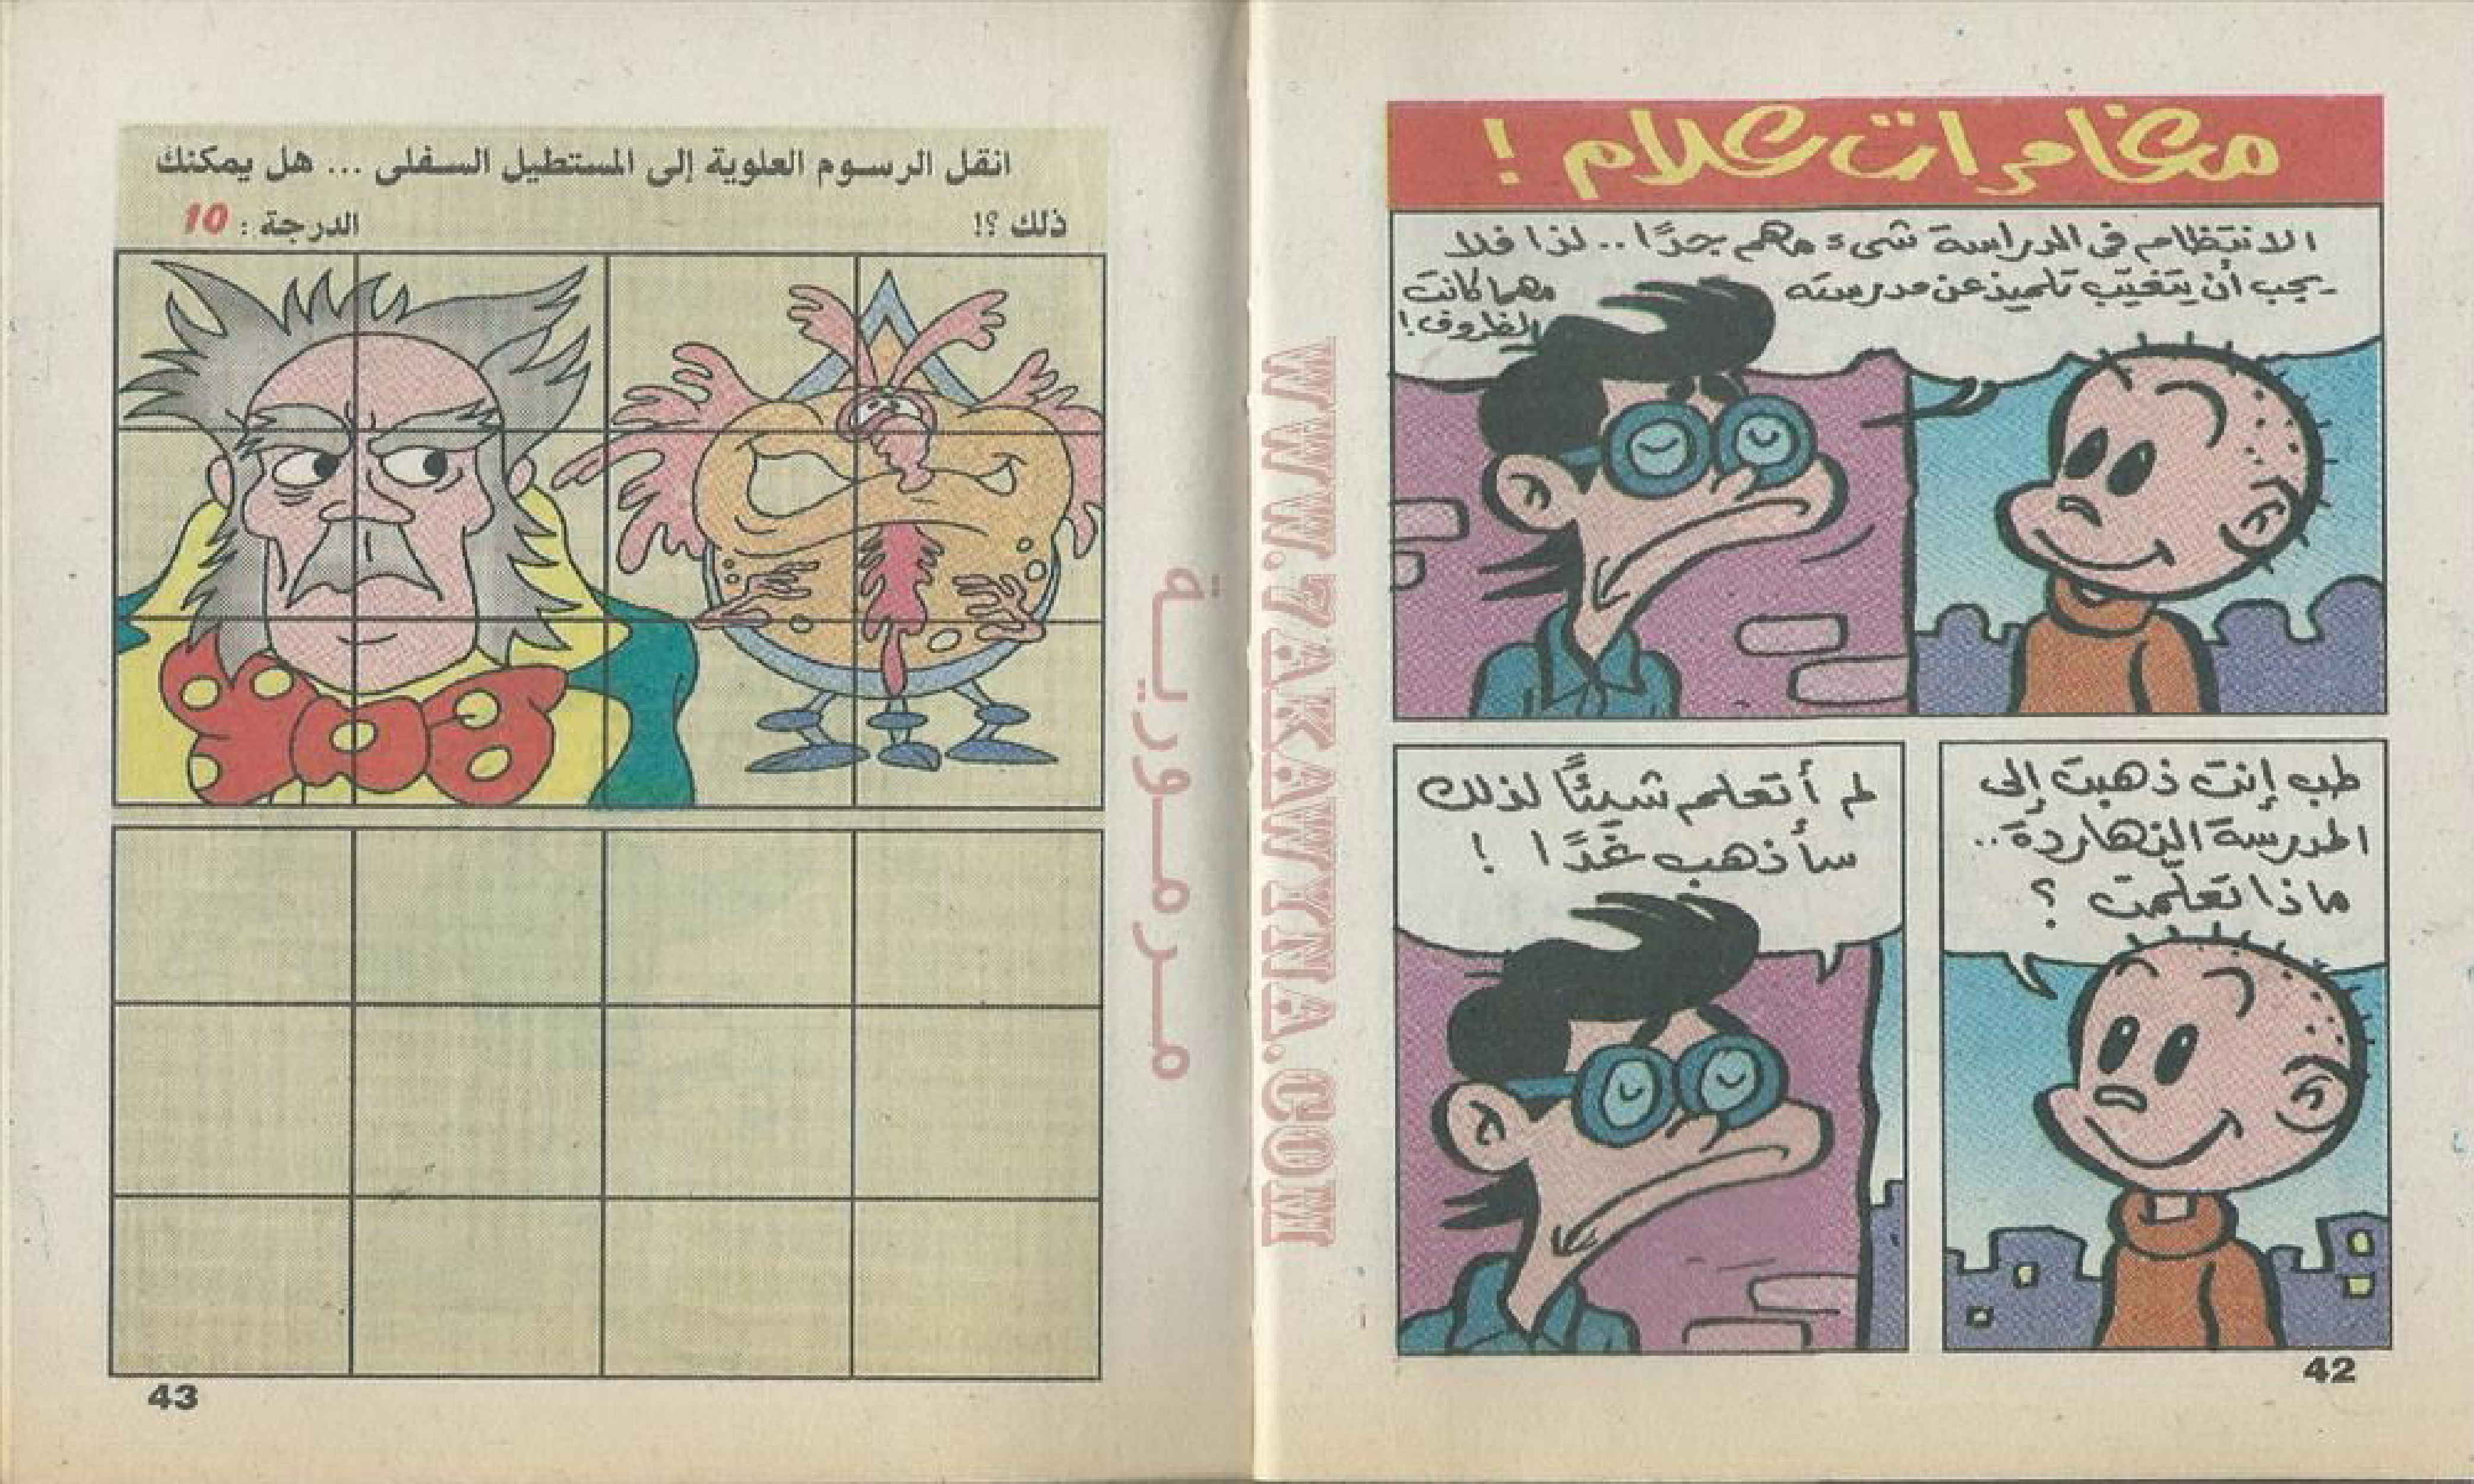 مغامرات علام !
الانتظام فى الدراسة شىء مهم جدًا .. لذا فلا
يجب أن يتغيّب تلميذ عن مدرسته مهما كانت
الظروف !
طب إنت ذهبت إلى
المدرسة النهاردة ..
ماذا تعلّمت ؟
لم أتعلم شيئًا لذلك
سأذهب غَدًا !
42
انقل الرسوم العلوية إلى المستطيل السفلى ... هل يمكنك
ذلك ؟!
الدرجة : 10
43
مرمورية
WWW.7AKAWYNA.COM